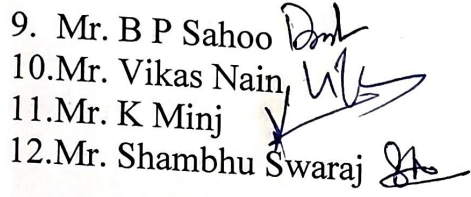 9. Mr. B P Sahoo
10.Mr. Vikas Nain,
11.Mr. K Minj
12.Mr. Shambhu Swaraj